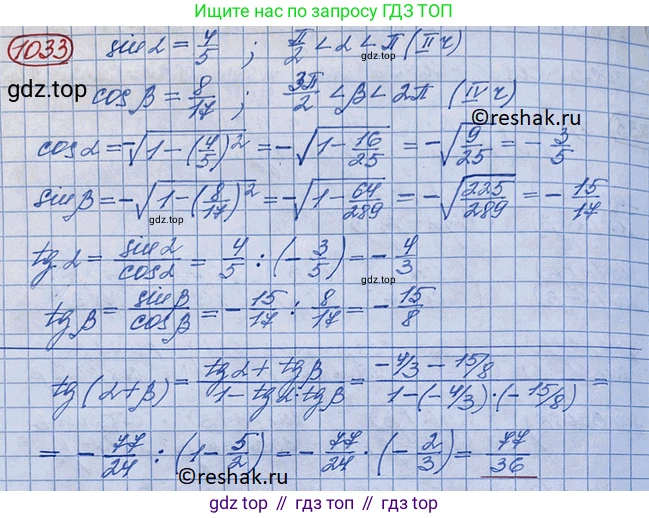 Ищите нас по запросу ГДЗ ТОП
1033 sin α = 4/5 ; π/2 < α < π (II ч)
gdz.top
cos β = 8/17 ; 3π/2 < β < 2π (IV ч)
gdz.top
©reshak.ru
cos α = -√(1-(4/5)²) = -√(1-16/25) = -√(9/25) = -3/5
sin β = -√(1-(8/17)²) = -√(1-64/289) = -√(225/289) = -15/17
gdz.top
tg α = sin α/cos α = 4/5 : (-3/5) = -4/3
gdz.top
tg β = sin β/cos β = -15/17 : 8/17 = -15/8
tg(α+β) = (tg α + tg β)/(1 - tg α · tg β) = (-4/3 - 15/8)/(1-(-4/3)·(-15/8)) =
= -77/24 : (1-5/2) = -77/24 · (-2/3) = 77/36
©reshak.ru
gdz.top
gdz.top // гдз.топ // gdz.top // гдз.топ